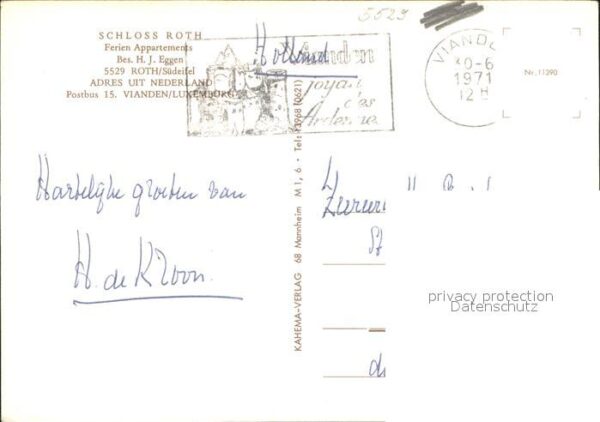 5529
SCHLOSS ROTH
Ferien Appartements
Bes. H. J. Eggen
5529 ROTH/Südeifel
ADRES UIT NEDERLAND
Postbus 15. VIANDEN/LUXEMBURG
Holland
Vianden
joyau
des
Ardennes
VIANDEN
-6
1971
12 H
Nr. 11390
Hartelijke groeten van
H. de Kroon.
KAHEMA-VERLAG 68 Mannheim M 1, 6 · Tel: 13968 (0621)
privacy protection
Datenschutz